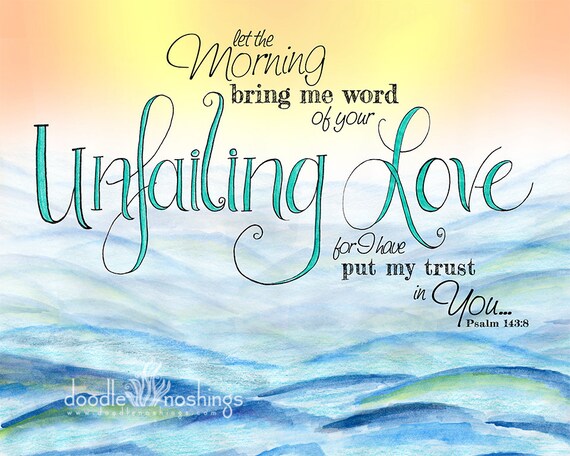 let the
Morning
bring me word
of your
Unfailing Love
for I have
put my trust
in You...
Psalm 143:8
doodle noshings
www.doodlenoshings.com